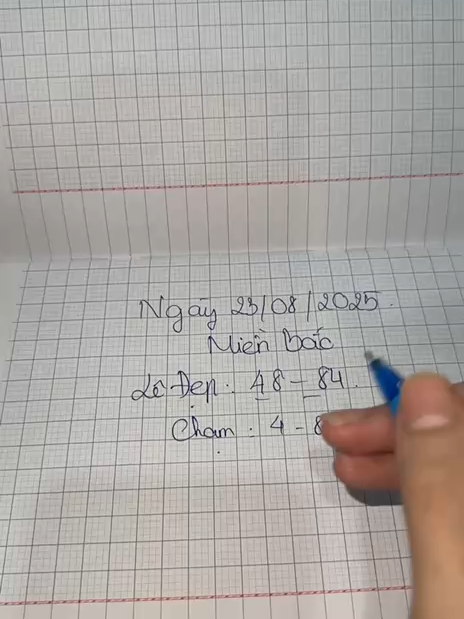 Ngày 23/08/2025.
Miền bắc
Lô Đẹp: 48 - 84.
Chạm: 4 - 8